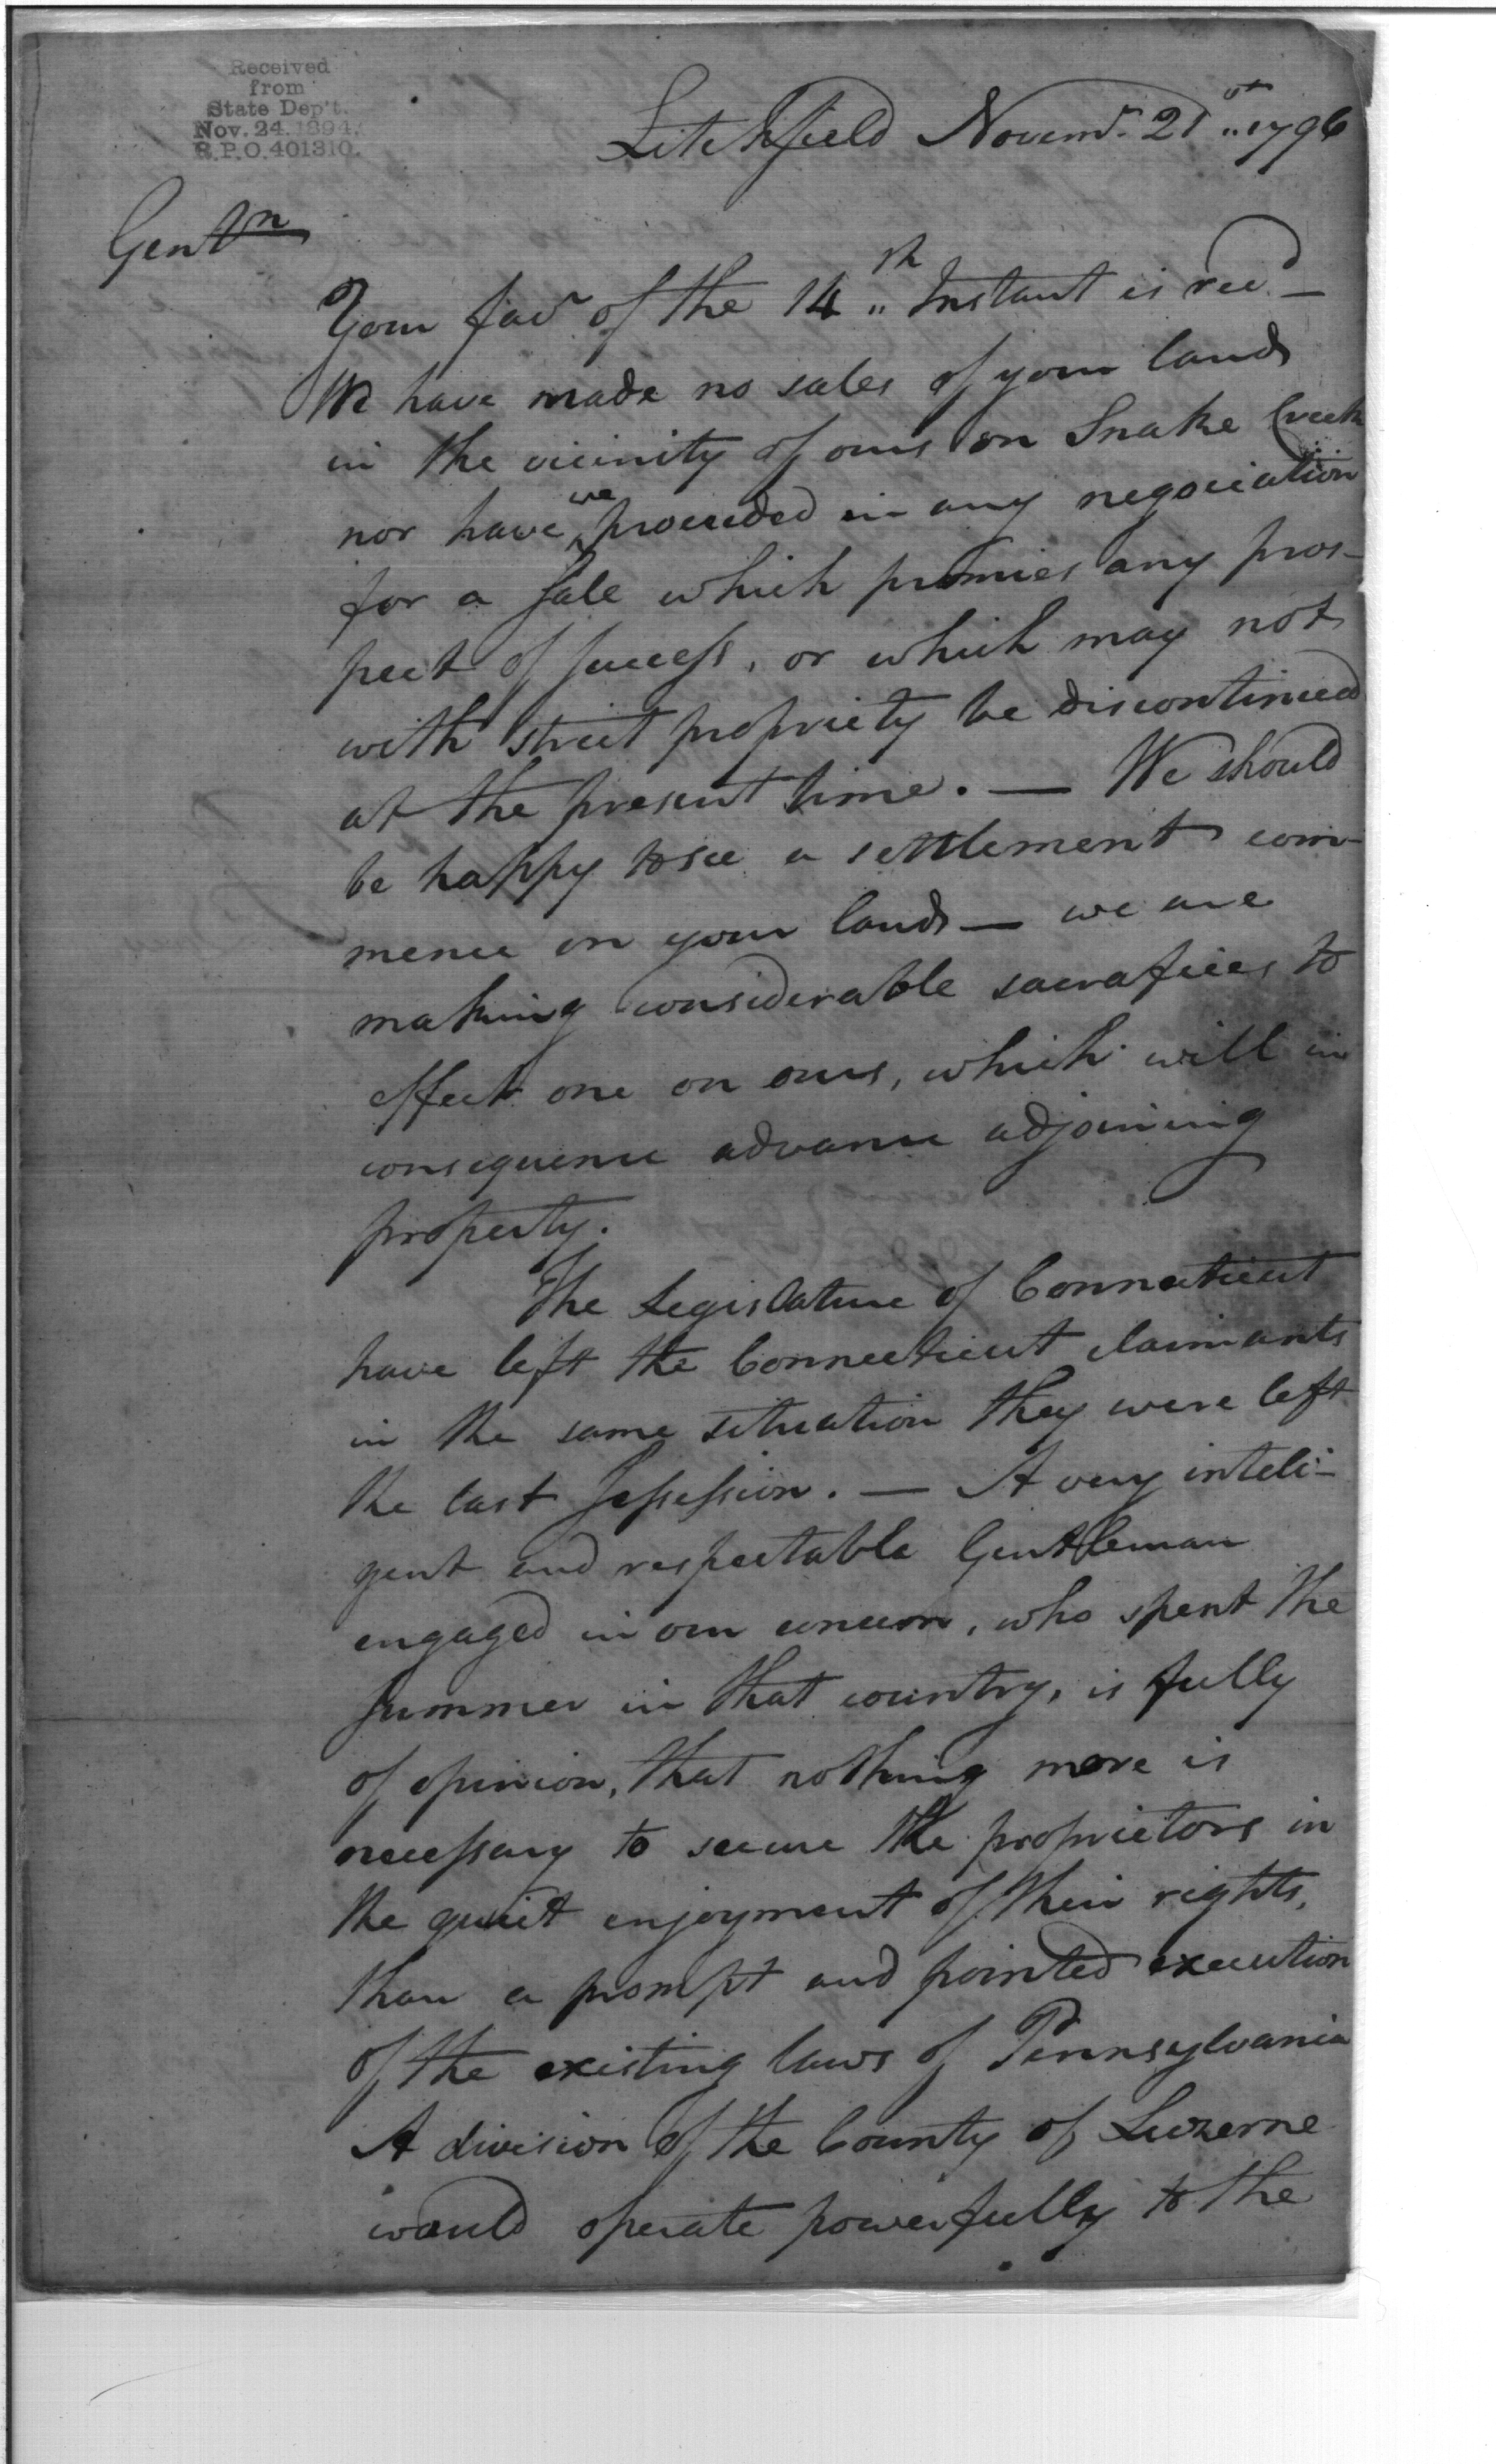 Received
from
State Dep't.
Nov. 24. 1894.
R.P.O. 401310.
Litchfield Novemr. 21st 1796
Gentn
Your favr of the 14th Instant is recd —
We have made no sales of your lands
in the vicinity of ours on Snake Creek
nor have we proceeded in any negociation
for a sale which promies any pros-
pect of success, or which may not
with strict propriety be discontinued
at the present time. — We should
be happy to see a settlement com-
mence on your lands — we are
making considerable sacrafices to
effect one on ours, which will in
consequence advance adjoining
property.
The Legislature of Connecticut
have left the Connecticut claimants
in the same situation they were left
the last Sessession. — A very inteli-
gent and respectable Gentleman
engaged in our concern, who spent the
summer in that country, is fully
of opinion, that nothing more is
necessary to secure the proprietors in
the quiet enjoyment of their rights,
than a prompt and pointed execution
of the existing laws of Pennsylvania
A division of the County of Luzerne
would operate powerfully to the